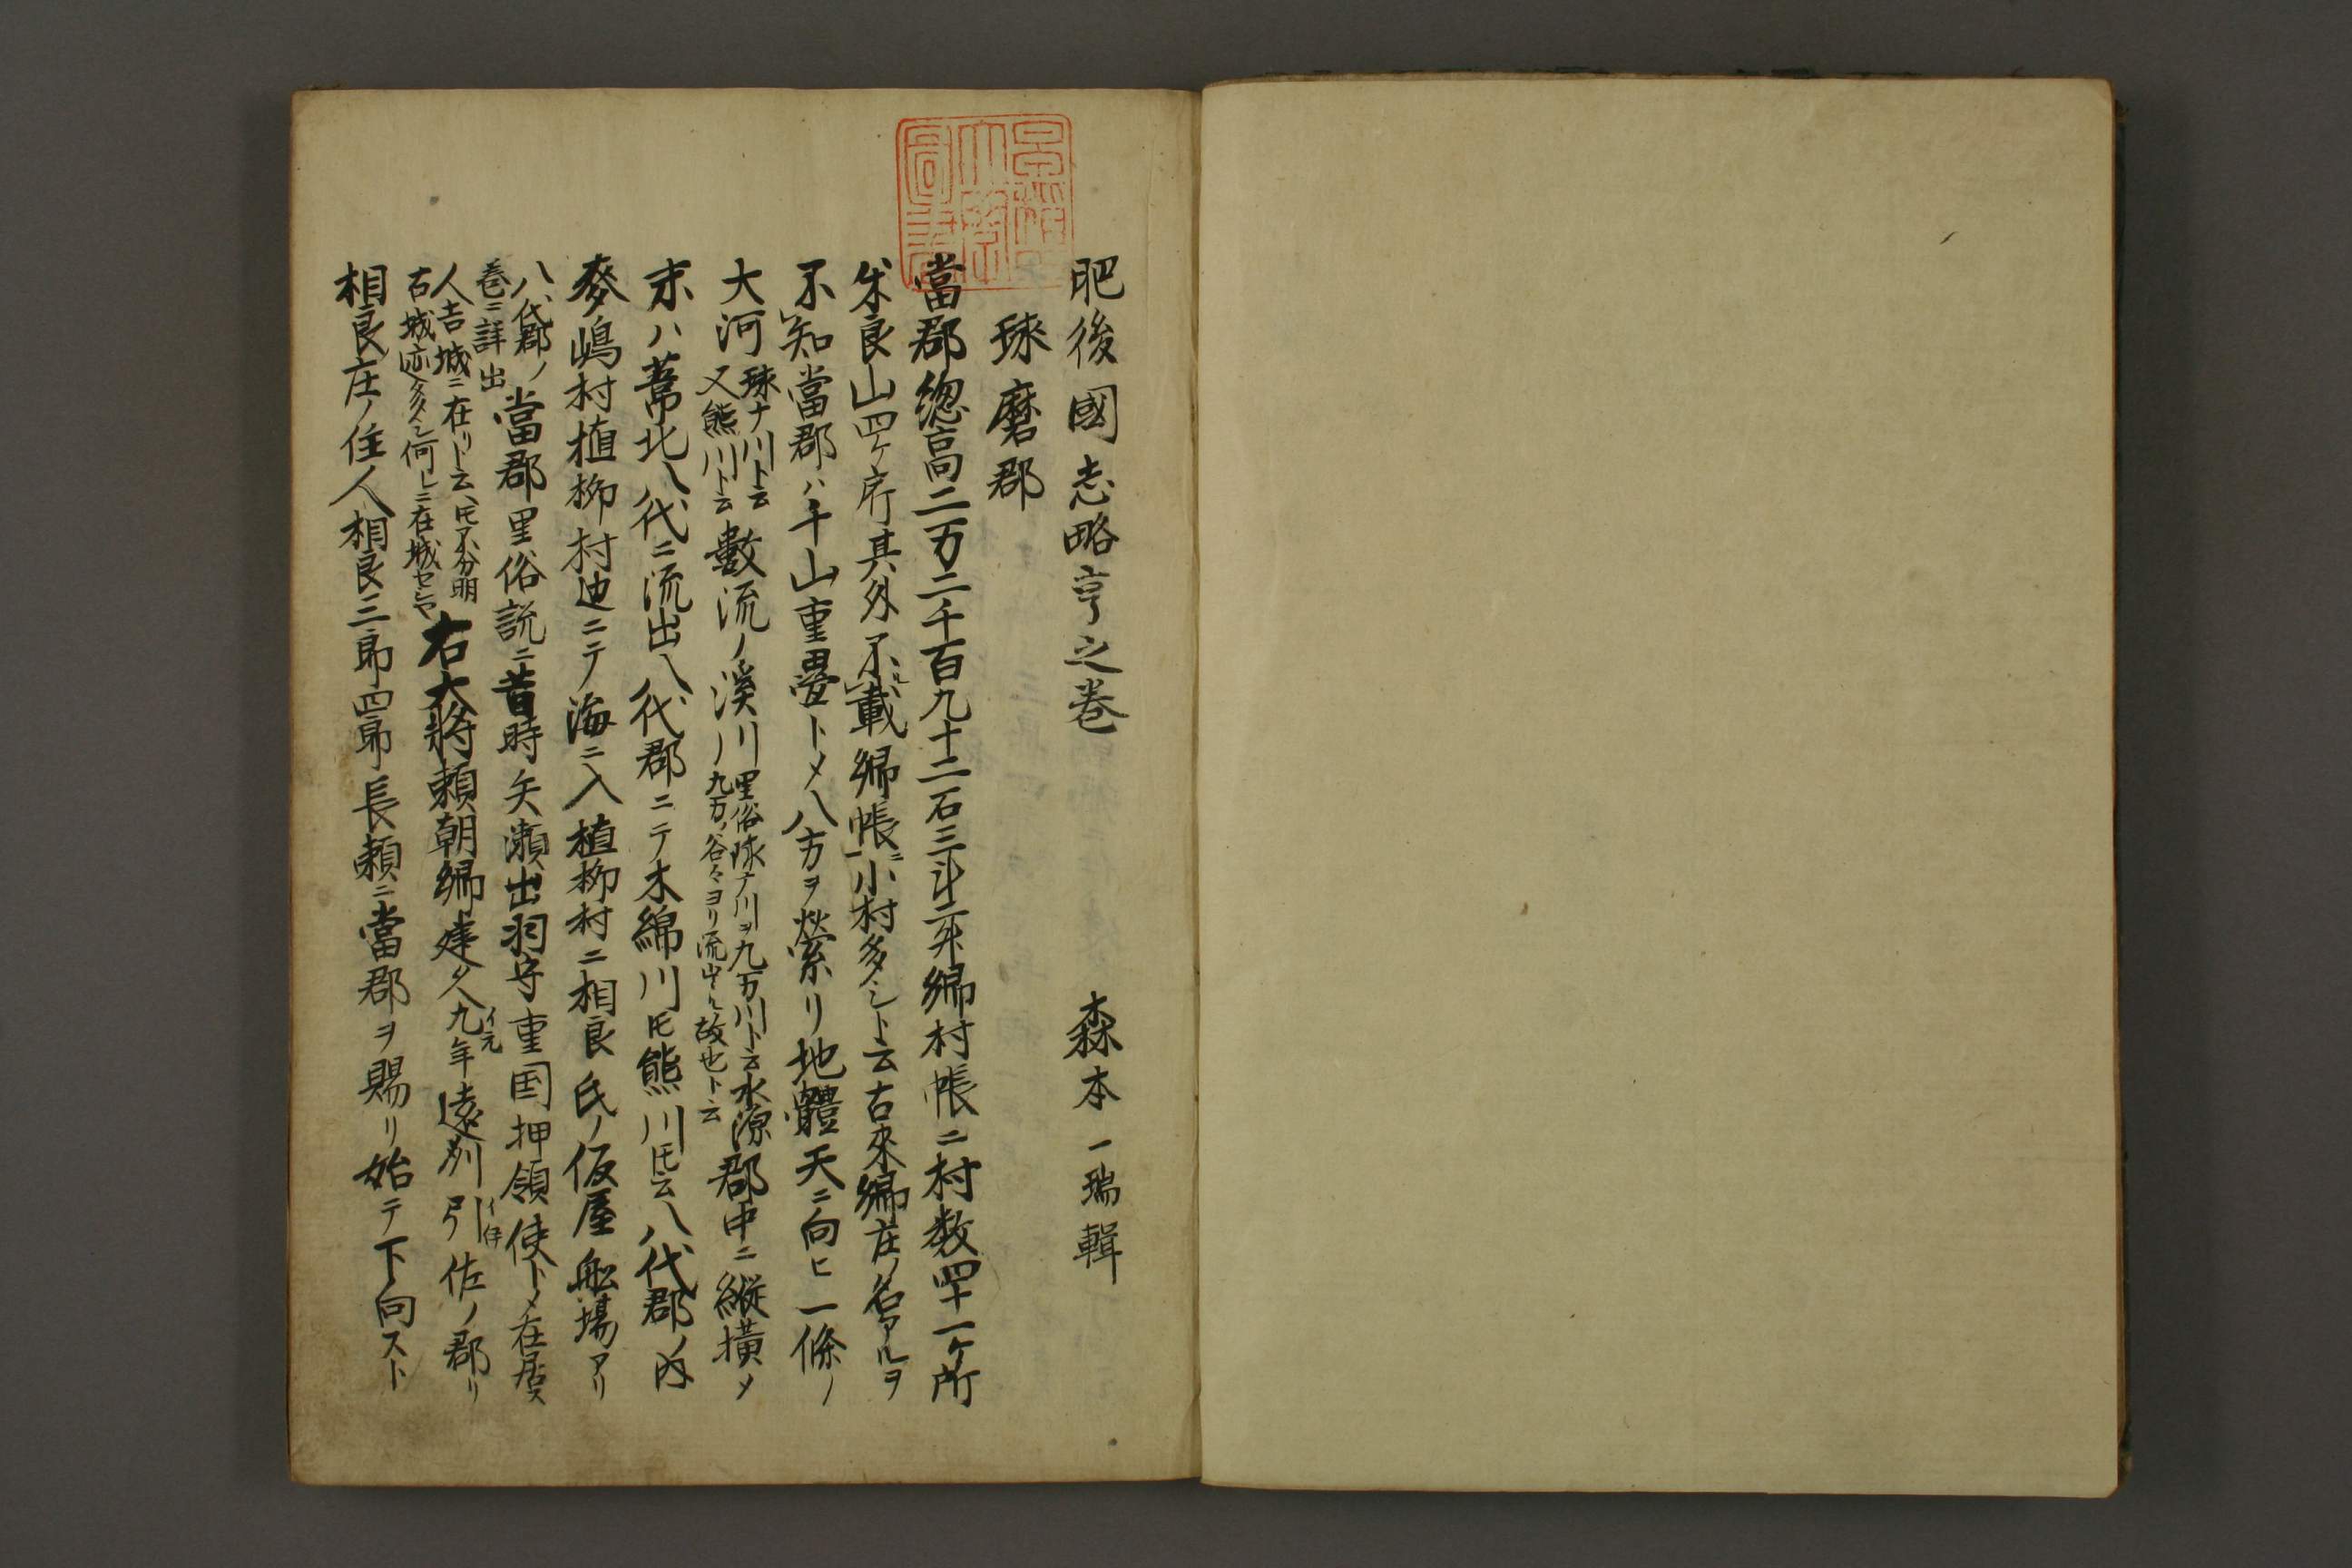 肥後國志略亨之巻
森本一瑞輯
球磨郡
當郡總高二万二千百九十二石三斗二升編村帳ニ村数四十一ケ所
米良山四ケ所其外不載編帳ニ小村多シト云古來編庄ノ名アルヲ
不知當郡ハ千山重疊トメ八方ヲ縈リ地體天ニ向ヒ一條ノ
大河
球ナ川ト云
又熊川ト云
數流ノ溪川
里俗球ナ川ヲ九万川ト云水源
九万ノ谷々ヨリ流出ル故也ト云
郡中ニ縱横メ
末ハ葦北八代ニ流出八代郡ニテ木綿川圧熊川圧云八代郡ノ内
麥嶋村植柳村迚ニテ海ニ入植柳村ニ相良氏ノ仮屋舩場アリ
八代郡ノ
巻ニ詳出
當郡里俗説ニ昔時矢瀬出羽守重国押領使トメ在居ス
人吉城ニ在リト云圧不分明
古城迹多シ何レニ在城センヤ
右大將頼朝編建久九年遠刕引佐ノ郡リ
イ元
相良庄ノ住人相良三郎四郎長頼ニ當郡ヲ賜リ始テ下向スト